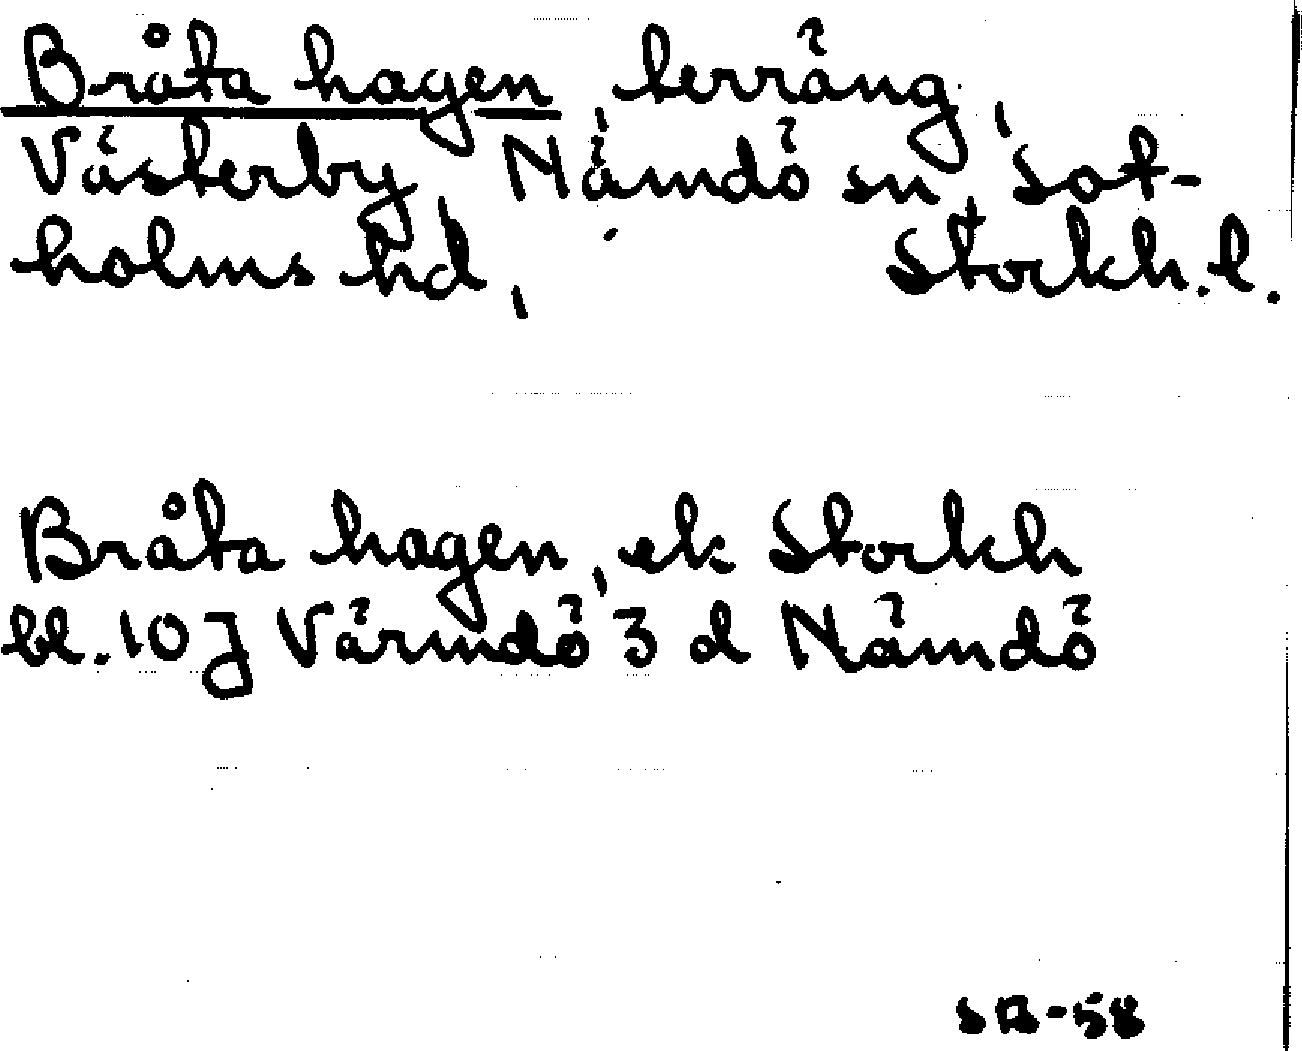 Bråta hagen, terräng,
Västerby, Nämdö sn, Sot-
holms hd, Stockh. l.
Bråta hagen, ek Stockh
bl. 10 J Värmdö 3 d Nämdö
SB-58